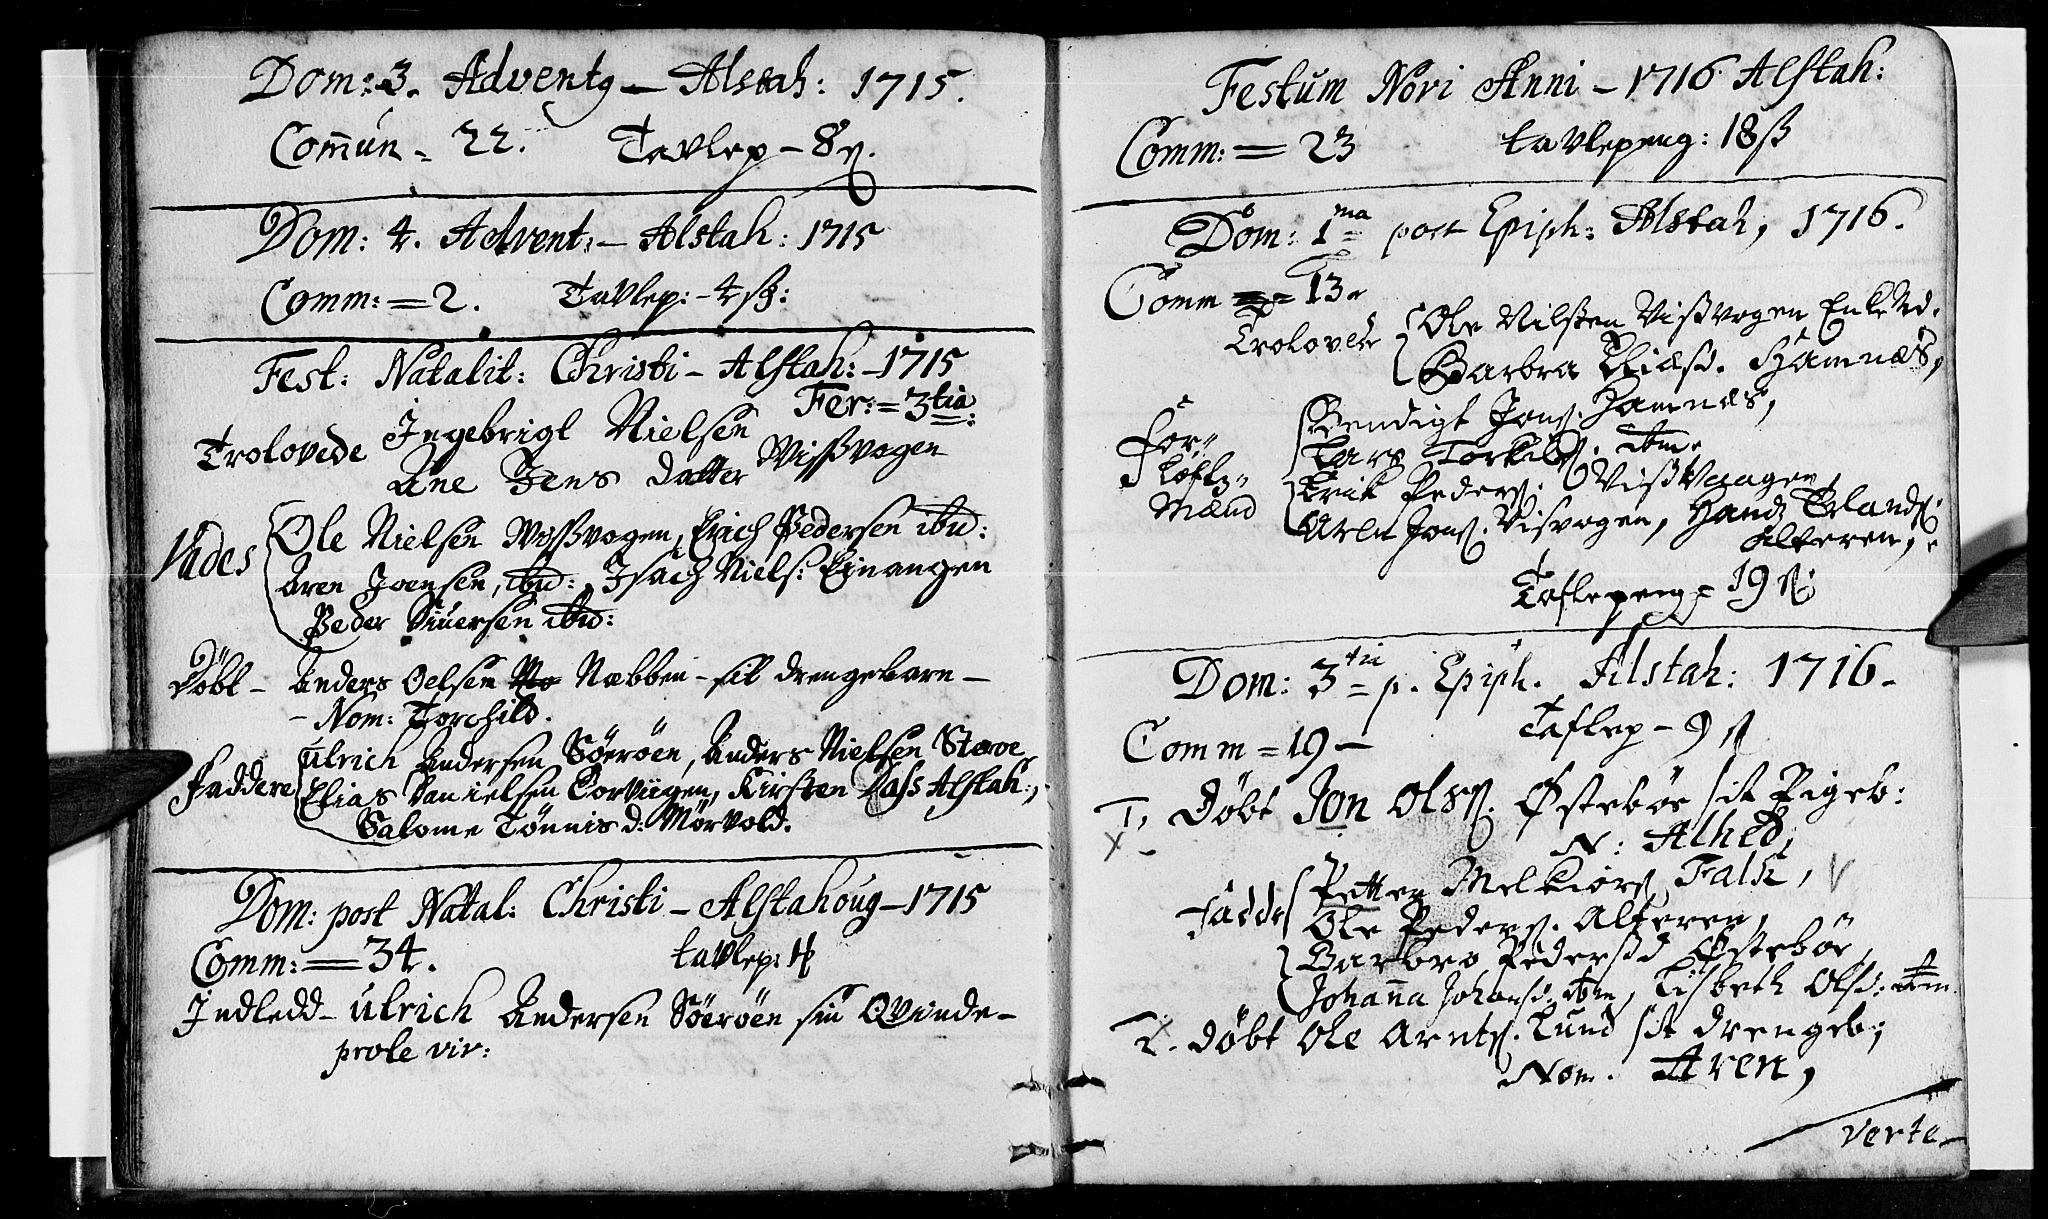 Dom: 3. Advent9 – Alstah: 1715.
Comun – 22. Tavlep – 8 ß.
Dom: 4. Advent: – Alstah: 1715
Comm: = 2. Tavlep: – 4 ß:
Fest: Natalit: Christi – Alstah: – 1715
Fer: = 3tia:
Trolovede Ingebrigt Nielsen
Ane Jens datter Wissvogen
Vades Ole Nielsen Wossvogen, Erich Pedersen ibid:
Aren Joensen, ibid:, Isach Niels: Einangen
Peder Siuersen ibid:
Döbt – Anders Oelsen Næbben – sit drengebarn –
– Nom: Torchild.
Faddere Ulrich Andersen Söeröen, Anders Nielsen Stavve
Elias Danielsen Torviigen, Kirsten Dass Alstah:,
Salome Tönnis d: Mörvold.
Dom: post Natal: Christi – Alstahoug – 1715
Comm: = 34. tavlep:
Indledd – Ulrich Andersen Söeröen sin Qvinde –
prole vir:
Festum Novi Anni – 1716 Alstah:
Comm: = 23 tavlepeng: 18 ß
Dom: 1ma post Epiph: Alstah, 1716.
Comm = 13
Trolovede Ole Nilssen Vissvogen Enke
Barbra Hamnæs,
For-
Bendigt Jons. Hamnæs,
Lars Torkils. ibm.
Erik Peders. Vissvaagen,
Mænd Aren Jons. Visvogen, Hans Erlands:
Alteren,
Taflepeng = 19 ß:
Dom: 3tia p. Epiph. Alstah: 1716 –
Comm = 19 – Taflep – 9 ß
1, Döbt Jon Ols. Østeböe sit Pigeb:
N: Alhed,
Fadde Petter Melkiors. Falk,
Ole Peders. Alteren,
Barbro Pedersd Østebôe,
Johanna Johansd. ibm, Lisbeth Olsd: ibm.
2. döbt Ole Arnts. Lund sit drengeb;
Nom. Aren,
verte –